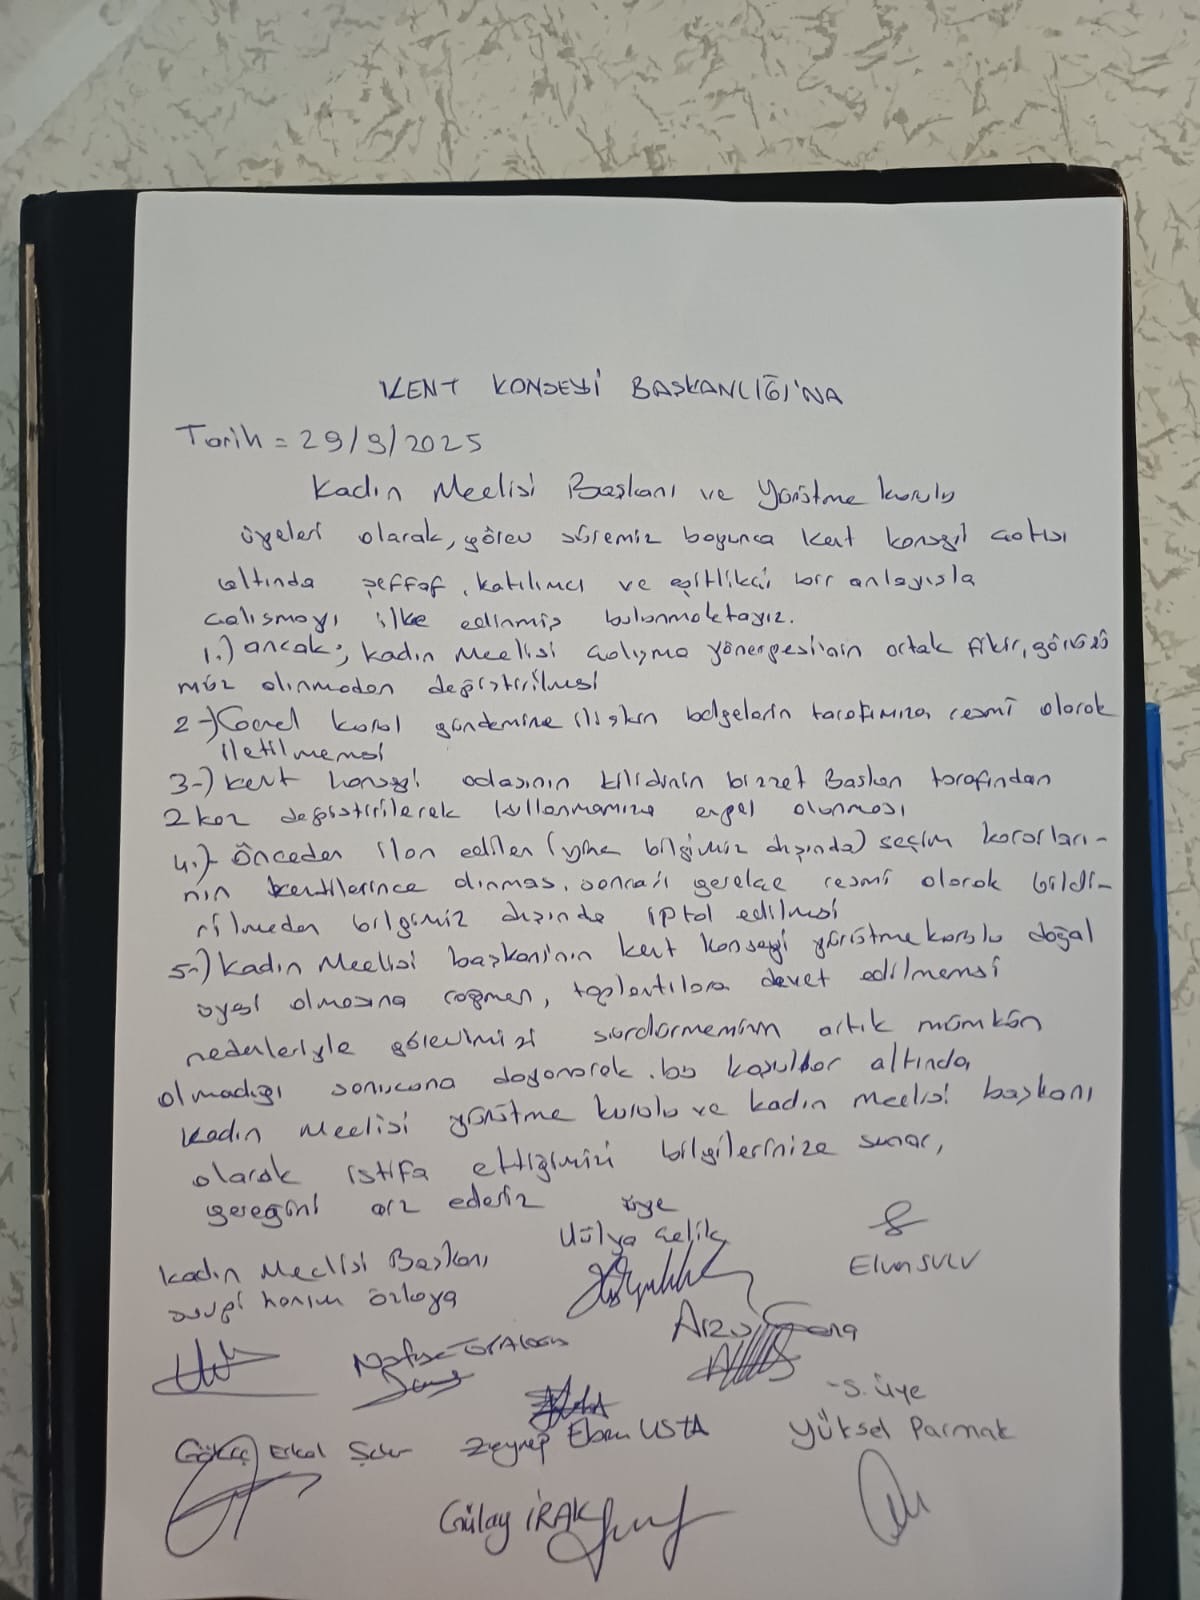 KENT KONSEYİ BAŞKANLIĞI'NA
Tarih = 29/9/2025
Kadın Meclisi Başkanı ve Yürütme kurulu
üyeleri olarak, görev süremiz boyunca kent konseyi çatısı
altında şeffaf, katılımcı ve eşitlikçi bir anlayışla
çalışmayı ilke edinmiş bulunmaktayız.
1.) ancak; kadın meclisi çalışma yönergesi'nin ortak fikir, görüşü
müz alınmadan değiştirilmesi
2-) Genel kurul gündemine ilişkin belgelerin tarafımıza resmî olarak
iletilmemesi
3-) kent konseyi odasının kilidinin bizzet Başkan tarafından
2 kez değiştirilerek kullanmamıza engel olunması
4.)- Önceden ilan edilen (yine bilgimiz dışında) seçim kararları-
nın kendilerince alınması, sonra gerekçe resmî olarak bildi-
rilmeden bilgimiz dışında iptal edilmesi
5-) Kadın Meclisi başkanı'nın kent konseyi yürütme kurulu doğal
üyesi olmasına rağmen, toplantılara davet edilmemesi
nedenleriyle görevimizi sürdürmemizin artık mümkün
olmadığı sonucuna dayanarak. bu koşullar altında
Kadın Meclisi yürütme kurulu ve kadın meclisi başkanı
olarak istifa ettiğimizi bilgilerinize sunar,
gereğini arz ederiz
üye
Hülya Çelik
Elvan SULU
Kadın Meclisi Başkanı
hanım Özkaya
Arzu
Nafise
-S. üye
Yüksel Parmak
Zeynep Ebru USTA
Gökçe Erkal
Gülay IRAK